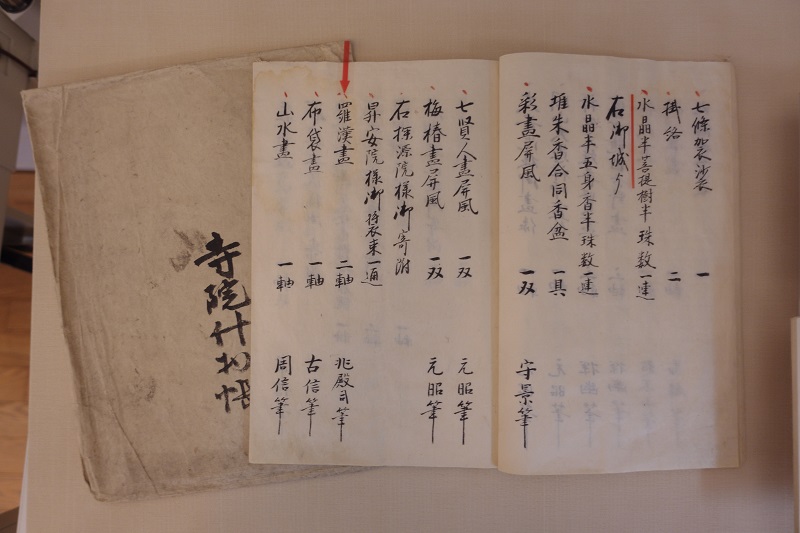 七條袈裟 一
掛絡 二
水晶半菩提樹半珠数 一連
右御城ゟ
水晶半五身香半珠数 一連
堆朱香合同香盆 一具
彩畫屏風 一双 守景筆
七賢人畫屏風 一双 元昭筆
梅椿畫屏風 一双 元昭筆
右探源院様御寄附
昇安院様御装束 一通
羅漢畫 二軸 兆殿司筆
布袋畫 一軸 古信筆
山水畫 一軸 周信筆
寺院什物帳